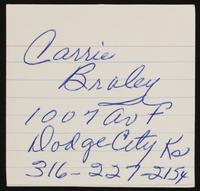 Carrie
Braley
1007 Av F
Dodge City Ks
316-227-2154